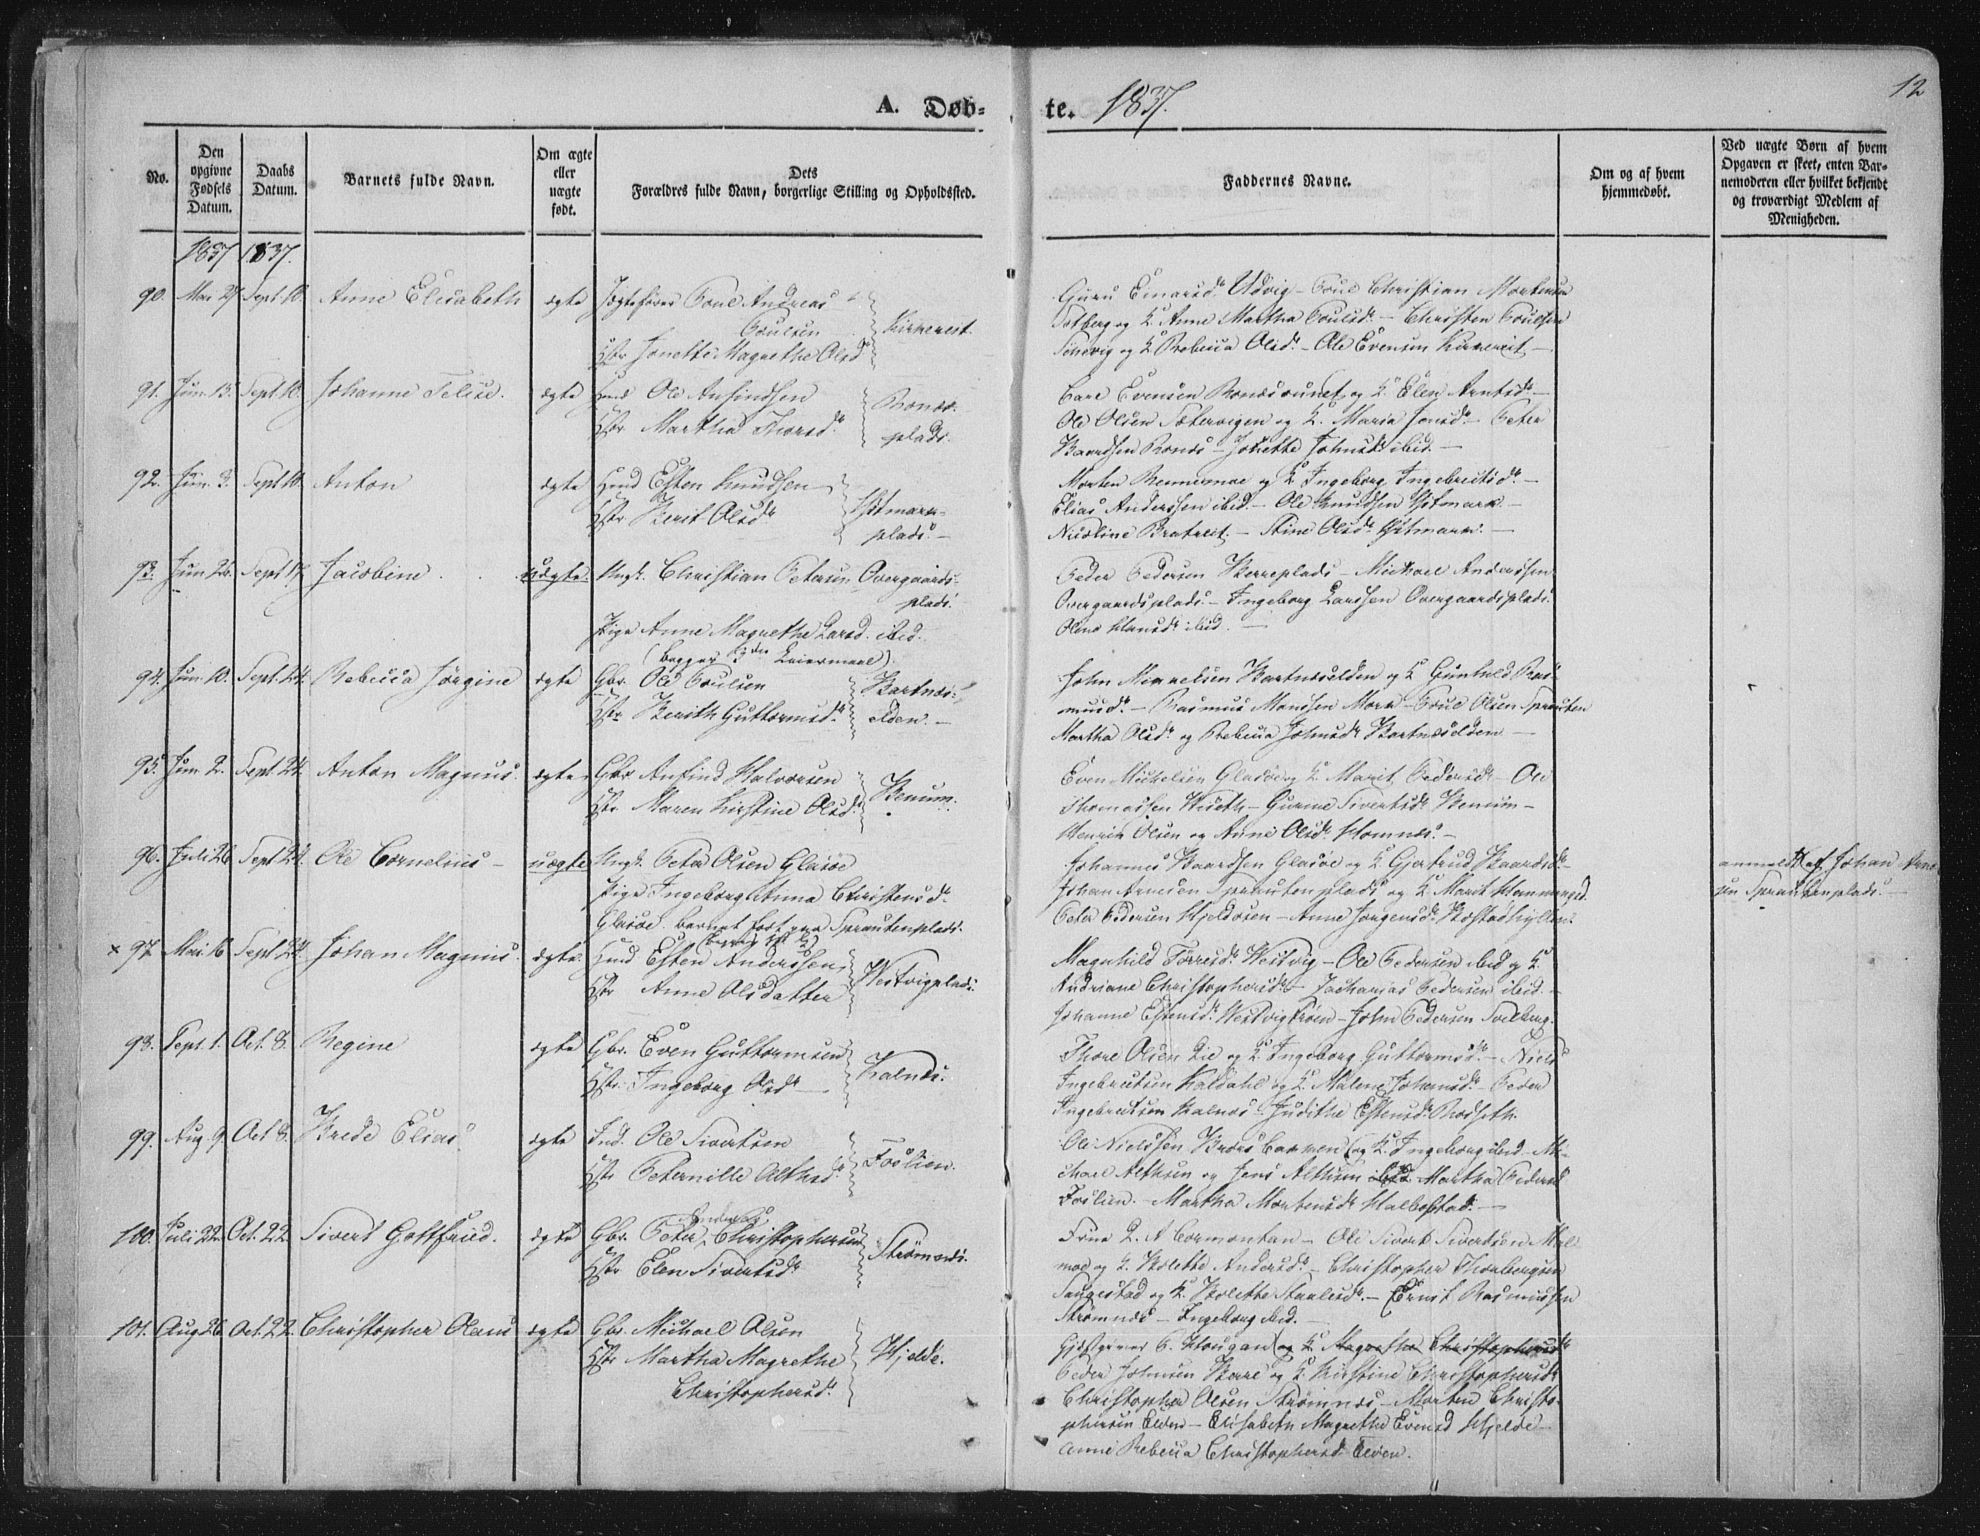 A. Døb-
te. 1837.
12
No.
Den opgivne Fødsels Datum.
Daabs Datum.
Barnets fulde Navn.
Om ægte eller uægte født.
Dets Forældres fulde Navn, borgerlige Stilling og Opholdssted.
Faddernes Navne.
Om og af hvem hjemmedøbt.
Ved uægte Børn af hvem Opgaven er skeet, enten Barnemoderen eller hvilket bekjendt og troværdigt Medlem af Menigheden.
1837 1837.
90. Mai 27 Sept. 10. Anne Elisabeth ægte Poul Andreas
Poulsen
Hstr Jonette Magrethe Olsd
Guru Einarsd. Utvig - Poul Christian Mortensen
og K. Anne Martha Poulsd. - Christen Poulsen
og K. Rebecca Olsd. - Ole Evensen
91. Jun. 13. Sept. 10. Johanne Felice. ægte Hmd Ole Anfindsen
Hstr Martha Thorsd.
plads.
Evensen og K. Elen Arntsd. -
Ole Olsen Sætervigen og K. Maria Jonsd. - Peter
Baardsen - Jonette Johnsd. ibid. -
92. Jun. 3. Sept 10. Anton ægte Hmd Esten Knudsen
Hstr Berit Olsd.
Østmark-
plads. -
Morten og K. Ingeborg Ingebretsd. -
Elias Anderssen ibid. - Ole Knudsen Østmark -
Nicoline - Stine Olsd. Østmark. -
93. Jun. 26. Sept 17. Jacobine. uægte. Ungk. Christian Petersen Overgaards-
plads.
Pige Anne Magrethe Larsd. ibid.
(begges Leiermaal).
Peder Pedersen - Michael Anderssen
Overgaardsplads. - Ingeborg Larssen Overgaardsplads.
Hansd. ibid. -
94. Jun. 10. Sept. 24. Rebecca Jörgine ægte Gbr. Ole Poulsen
Hstr Berith Guttormsd.
Bartnes-
elden. -
John Mikkelsen Bartneselden og K. Gunhild Ras-
musd. - Rasmus Monssen - Poul Olsen
Martha Olsd. og Rebecca Johnsd. Bartneselden -
95. Jun. 2. Sept 24. Anton Magnus. ægte. Gbr Anfind Halvorsen
Hstr Maren Kirstine Olsd.
Benum.
Even Mickelsen Glasöe og K. Marit Pedersd. - Ole
Thomassen - Sivertsd. Benum -
Henrik Olsen og Anne Olsd. -
96. Juli 26 Sept 24. Ole Cornelius - uægte Ungk. Peter Olsen Glasöe
Pige Ingeborg Anna Christensd.
Glasöe. barnet födt paa Sprautenplads.
Johannes Baardsen Glasöe og K. Gjertrud Baardsd. -
Johan Arnesen Sprautenplads og K. Marit
Peter Pedersen - Anne Jörgensd.
anmeldt af Johan Arne-
sen Sprautenplads. -
x 97. Mai 16 Sept 24. Johan Magnus. ægte. Hmd Esten Anderssen
Hstr Anne Olsdatter
Westvigplads.
Magnhild Torresd. Westvig - Ole Pedersen ibid og K.
Andriane Christophersd. - Zacharias Pedersen ibid. -
Johanne Estensd. Westvig - John Pedersen
98. Sept. 1. Oct. 8. Regine ægte Gbr. Even Guttormsen
Hstr. Ingeborg Olsd.
Kalnes.
Thore Olsen Lie og K. Ingeborg Guttormsd. - Niels
Ingebretsen Kaldahl og K. Malene Johansd. - Peder
Ingebretsen Kalnes - Judithe Estensd.
99. Aug. 9. Oct 8. Brede Elias ægte Ind. Ole Sivertsen
Hstr Peternille Althsd.
Foslien.
Ole Nielssen og K. Ingeborg ibid - Mi-
chael Althsen og Jens Althsen ibid Martha Pedersd
Foslien. - Martha Mortensd. Malbostad. -
100. Juli 22. Oct. 22 Sivert Gottfried. ægte Gbr. Peter Andreas Christophersen
Hstr Elen Sivertsd.
Strømnes.
Frue Cormontan - Ole Sivert Sivertsen
og K. Nolette Andersd. - Christopher Thorbergsen
Saugestad og K. - Ernst Rasmussen
Strømnes - Ingeborg ibid. -
101. Aug 26. Oct. 22. Christopher Olaus ægte Gbr. Michael Olsen
Hstr Martha Magrethe
Christophersd.
Hjelde.
Gjestgiver Hougan og K. Magrethe Christophersd
Peder Johnsen og K. Kirstine Christophersd.
Christopher Olsen Strømnes - Morten Christo-
phersen Elden - Elisabeth Magrethe Evensd Hjelde -
Anne Rebecca Christophersd. Elden.